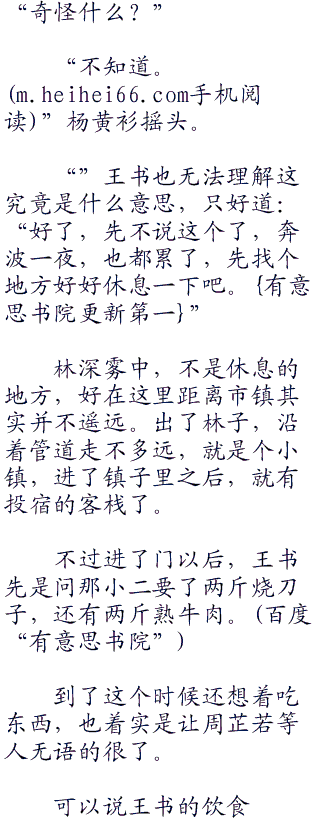 “奇怪什么？”
“不知道。
(m.heihei66.com手机阅
读)”杨黄衫摇头。
“”王书也无法理解这
究竟是什么意思，只好道：
“好了，先不说这个了，奔
波一夜，也都累了，先找个
地方好好休息一下吧。{有意
思书院更新第一}”
林深雾中，不是休息的
地方，好在这里距离市镇其
实并不遥远。出了林子，沿
着管道走不多远，就是个小
镇，进了镇子里之后，就有
投宿的客栈了。
不过进了门以后，王书
先是问那小二要了两斤烧刀
子，还有两斤熟牛肉。(百度
“有意思书院”)
到了这个时候还想着吃
东西，也着实是让周芷若等
人无语的很了。
可以说王书的饮食